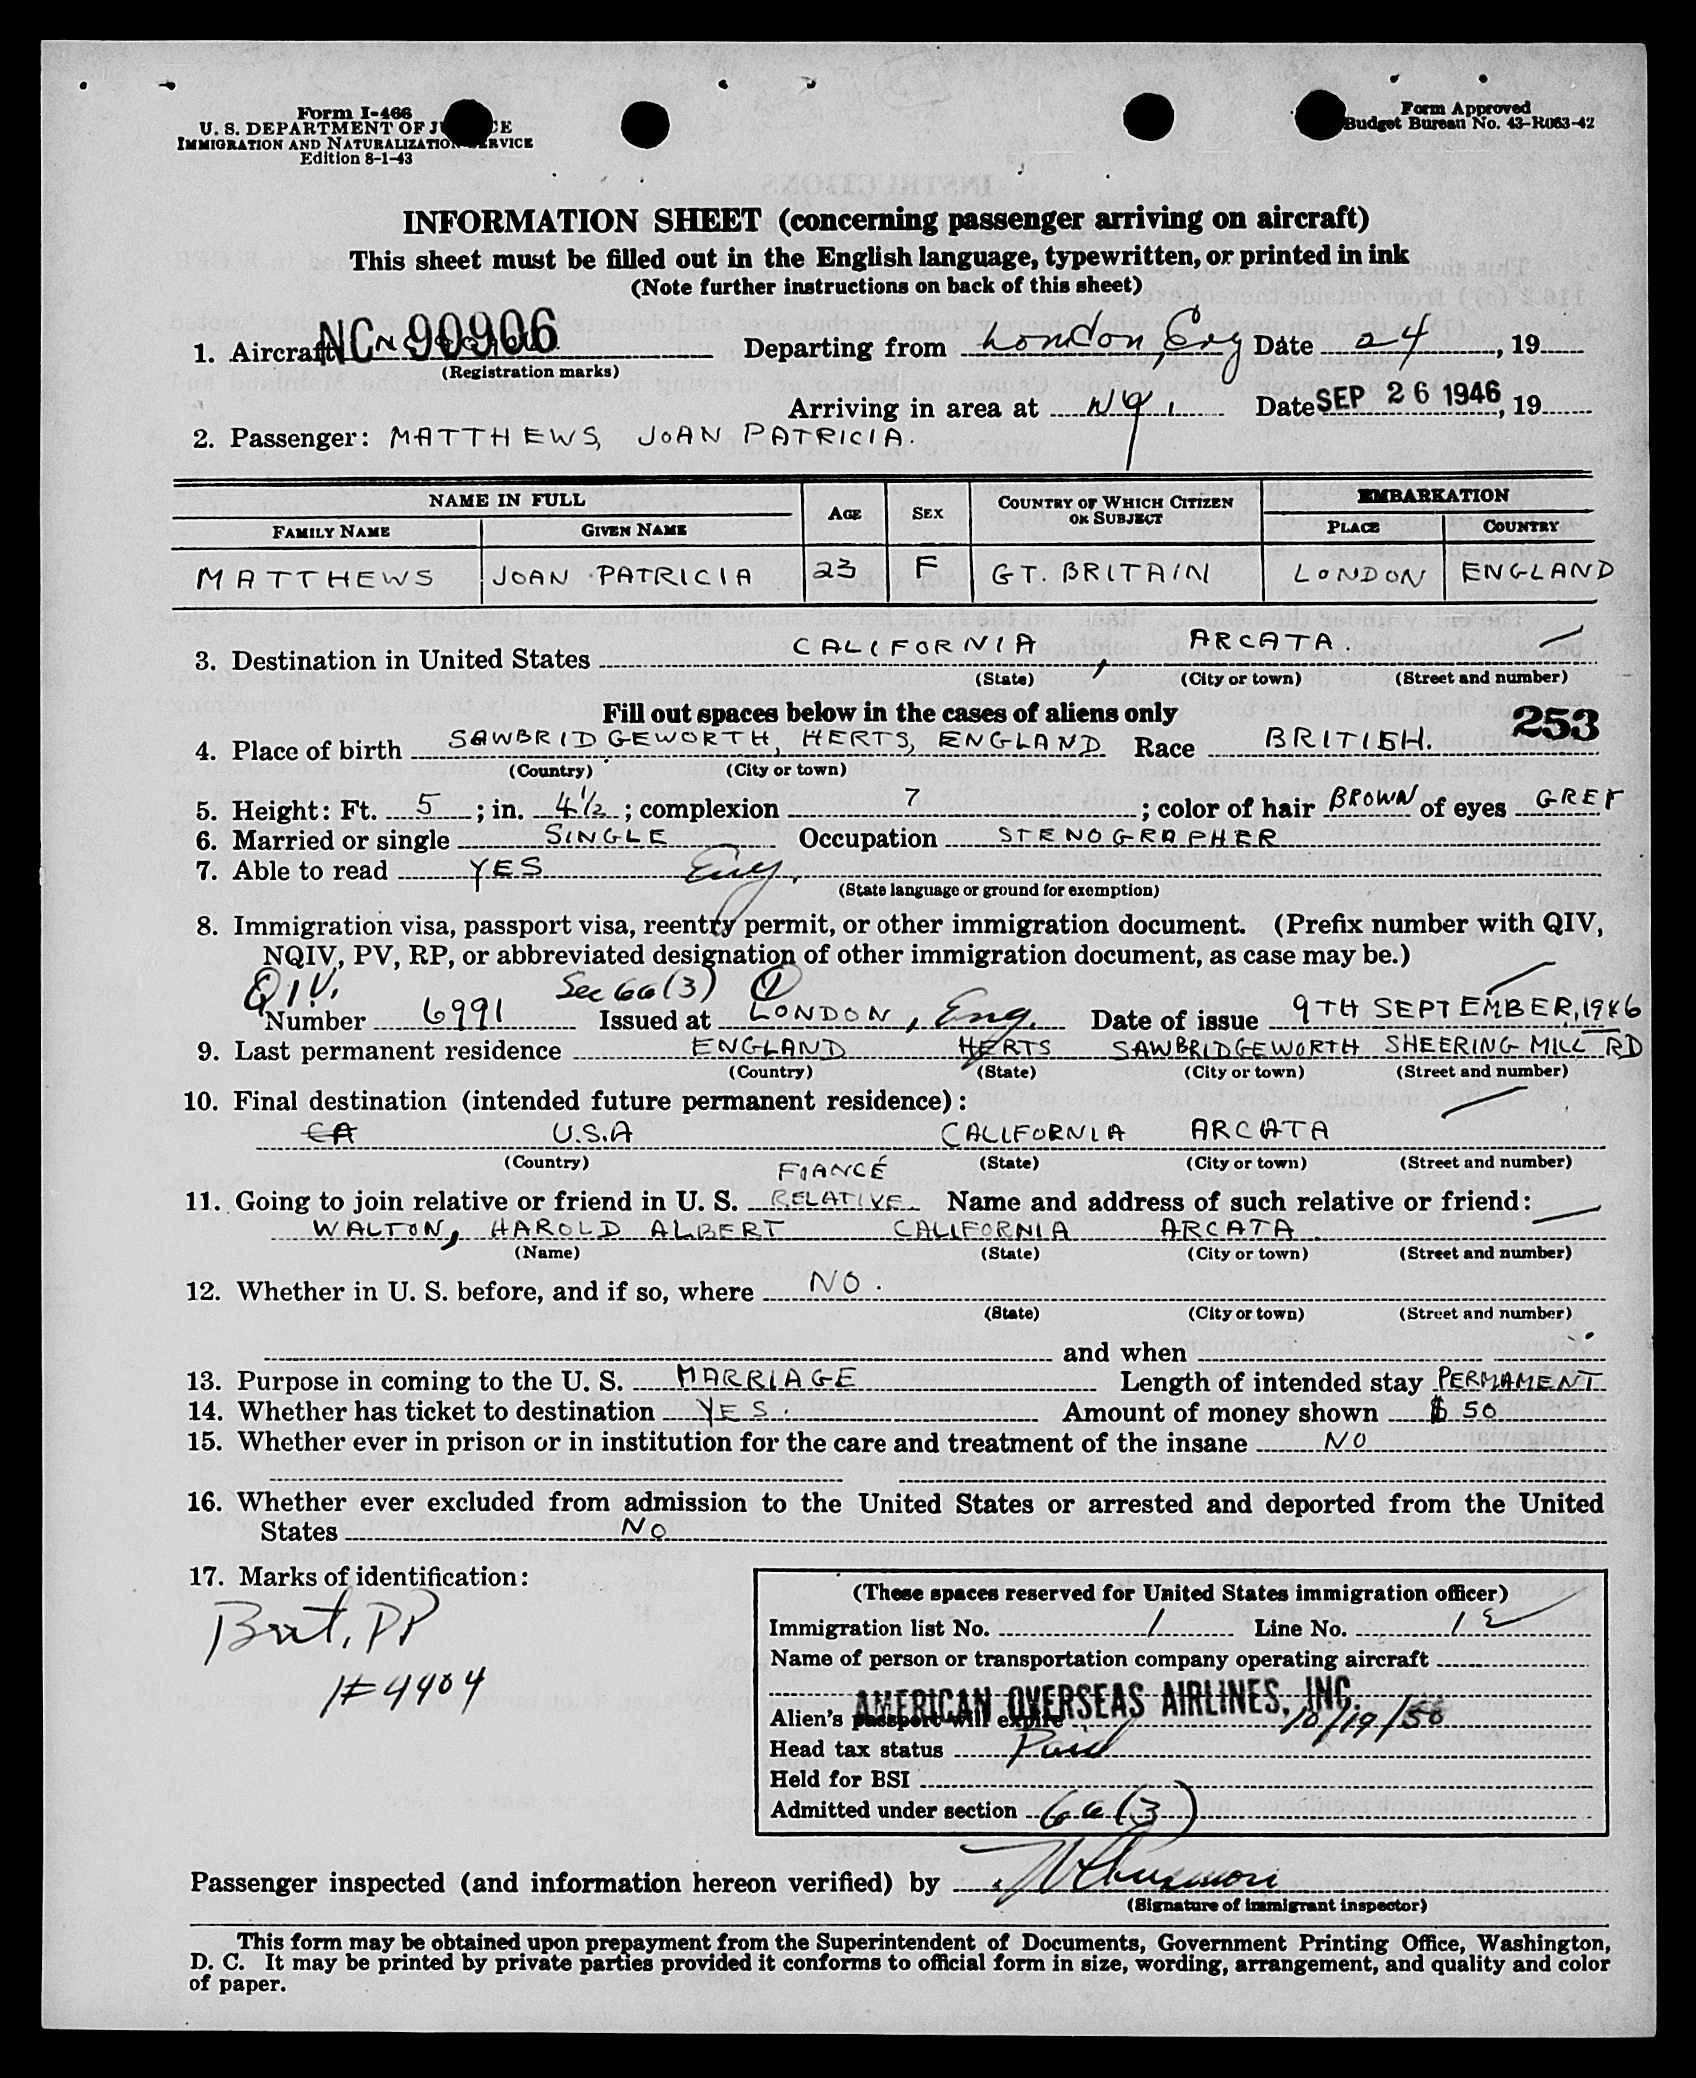 Form I-466
U. S. DEPARTMENT OF J CE
IMMIGRATION AND NATURALIZATION SERVICE
Edition 8-1-43
Form Approved
Budget Bureau No. 43-R063-42
INFORMATION SHEET (concerning passenger arriving on aircraft)
This sheet must be filled out in the English language, typewritten, or printed in ink
(Note further instructions on back of this sheet)
1. Aircraft NC 90906 Departing from London, Eng Date 24, 19
(Registration marks)
Arriving in area at NY. Date SEP 26 1946, 19
2. Passenger: MATTHEWS, JOAN PATRICIA.
NAME IN FULL AGE SEX COUNTRY OF WHICH CITIZEN OR SUBJECT EMBARKATION
FAMILY NAME GIVEN NAME PLACE COUNTRY
MATTHEWS JOAN PATRICIA 23 F GT. BRITAIN LONDON ENGLAND
3. Destination in United States CALIFORNIA, ARCATA.
(State) (City or town) (Street and number)
Fill out spaces below in the cases of aliens only 253
4. Place of birth SAWBRIDGEWORTH, HERTS, ENGLAND Race BRITISH.
(Country) (City or town)
5. Height: Ft. 5; in. 4½; complexion 7; color of hair BROWN of eyes GREY
6. Married or single SINGLE Occupation STENOGRAPHER
7. Able to read YES Eng.
(State language or ground for exemption)
8. Immigration visa, passport visa, reentry permit, or other immigration document. (Prefix number with QIV,
NQIV, PV, RP, or abbreviated designation of other immigration document, as case may be.)
QIV. Sec 6a(3) 1
Number 6991 Issued at LONDON, Eng. Date of issue 9TH SEPTEMBER, 1946
9. Last permanent residence ENGLAND HERTS SAWBRIDGEWORTH SHEERING MILL RD
(Country) (State) (City or town) (Street and number)
10. Final destination (intended future permanent residence):
CA U.S.A CALIFORNIA ARCATA
(Country) (State) (City or town) (Street and number)
FIANCÉ
11. Going to join relative or friend in U. S. RELATIVE Name and address of such relative or friend:
WALTON, HAROLD ALBERT CALIFORNIA ARCATA
(Name) (State) (City or town) (Street and number)
12. Whether in U. S. before, and if so, where NO.
(State) (City or town) (Street and number)
and when
13. Purpose in coming to the U. S. MARRIAGE Length of intended stay PERMAMENT
14. Whether has ticket to destination YES. Amount of money shown $50
15. Whether ever in prison or in institution for the care and treatment of the insane NO
16. Whether ever excluded from admission to the United States or arrested and deported from the United
States NO
17. Marks of identification:
Brit. PP
# 4404
(These spaces reserved for United States immigration officer)
Immigration list No. 1 Line No. 1
Name of person or transportation company operating aircraft
AMERICAN OVERSEAS AIRLINES, INC.
Alien's passport will expire 10/19/50
Head tax status Paid
Held for BSI
Admitted under section 6a(3)
Passenger inspected (and information hereon verified) by
(Signature of immigrant inspector)
This form may be obtained upon prepayment from the Superintendent of Documents, Government Printing Office, Washington,
D. C. It may be printed by private parties provided it conforms to official form in size, wording, arrangement, and quality and color
of paper.